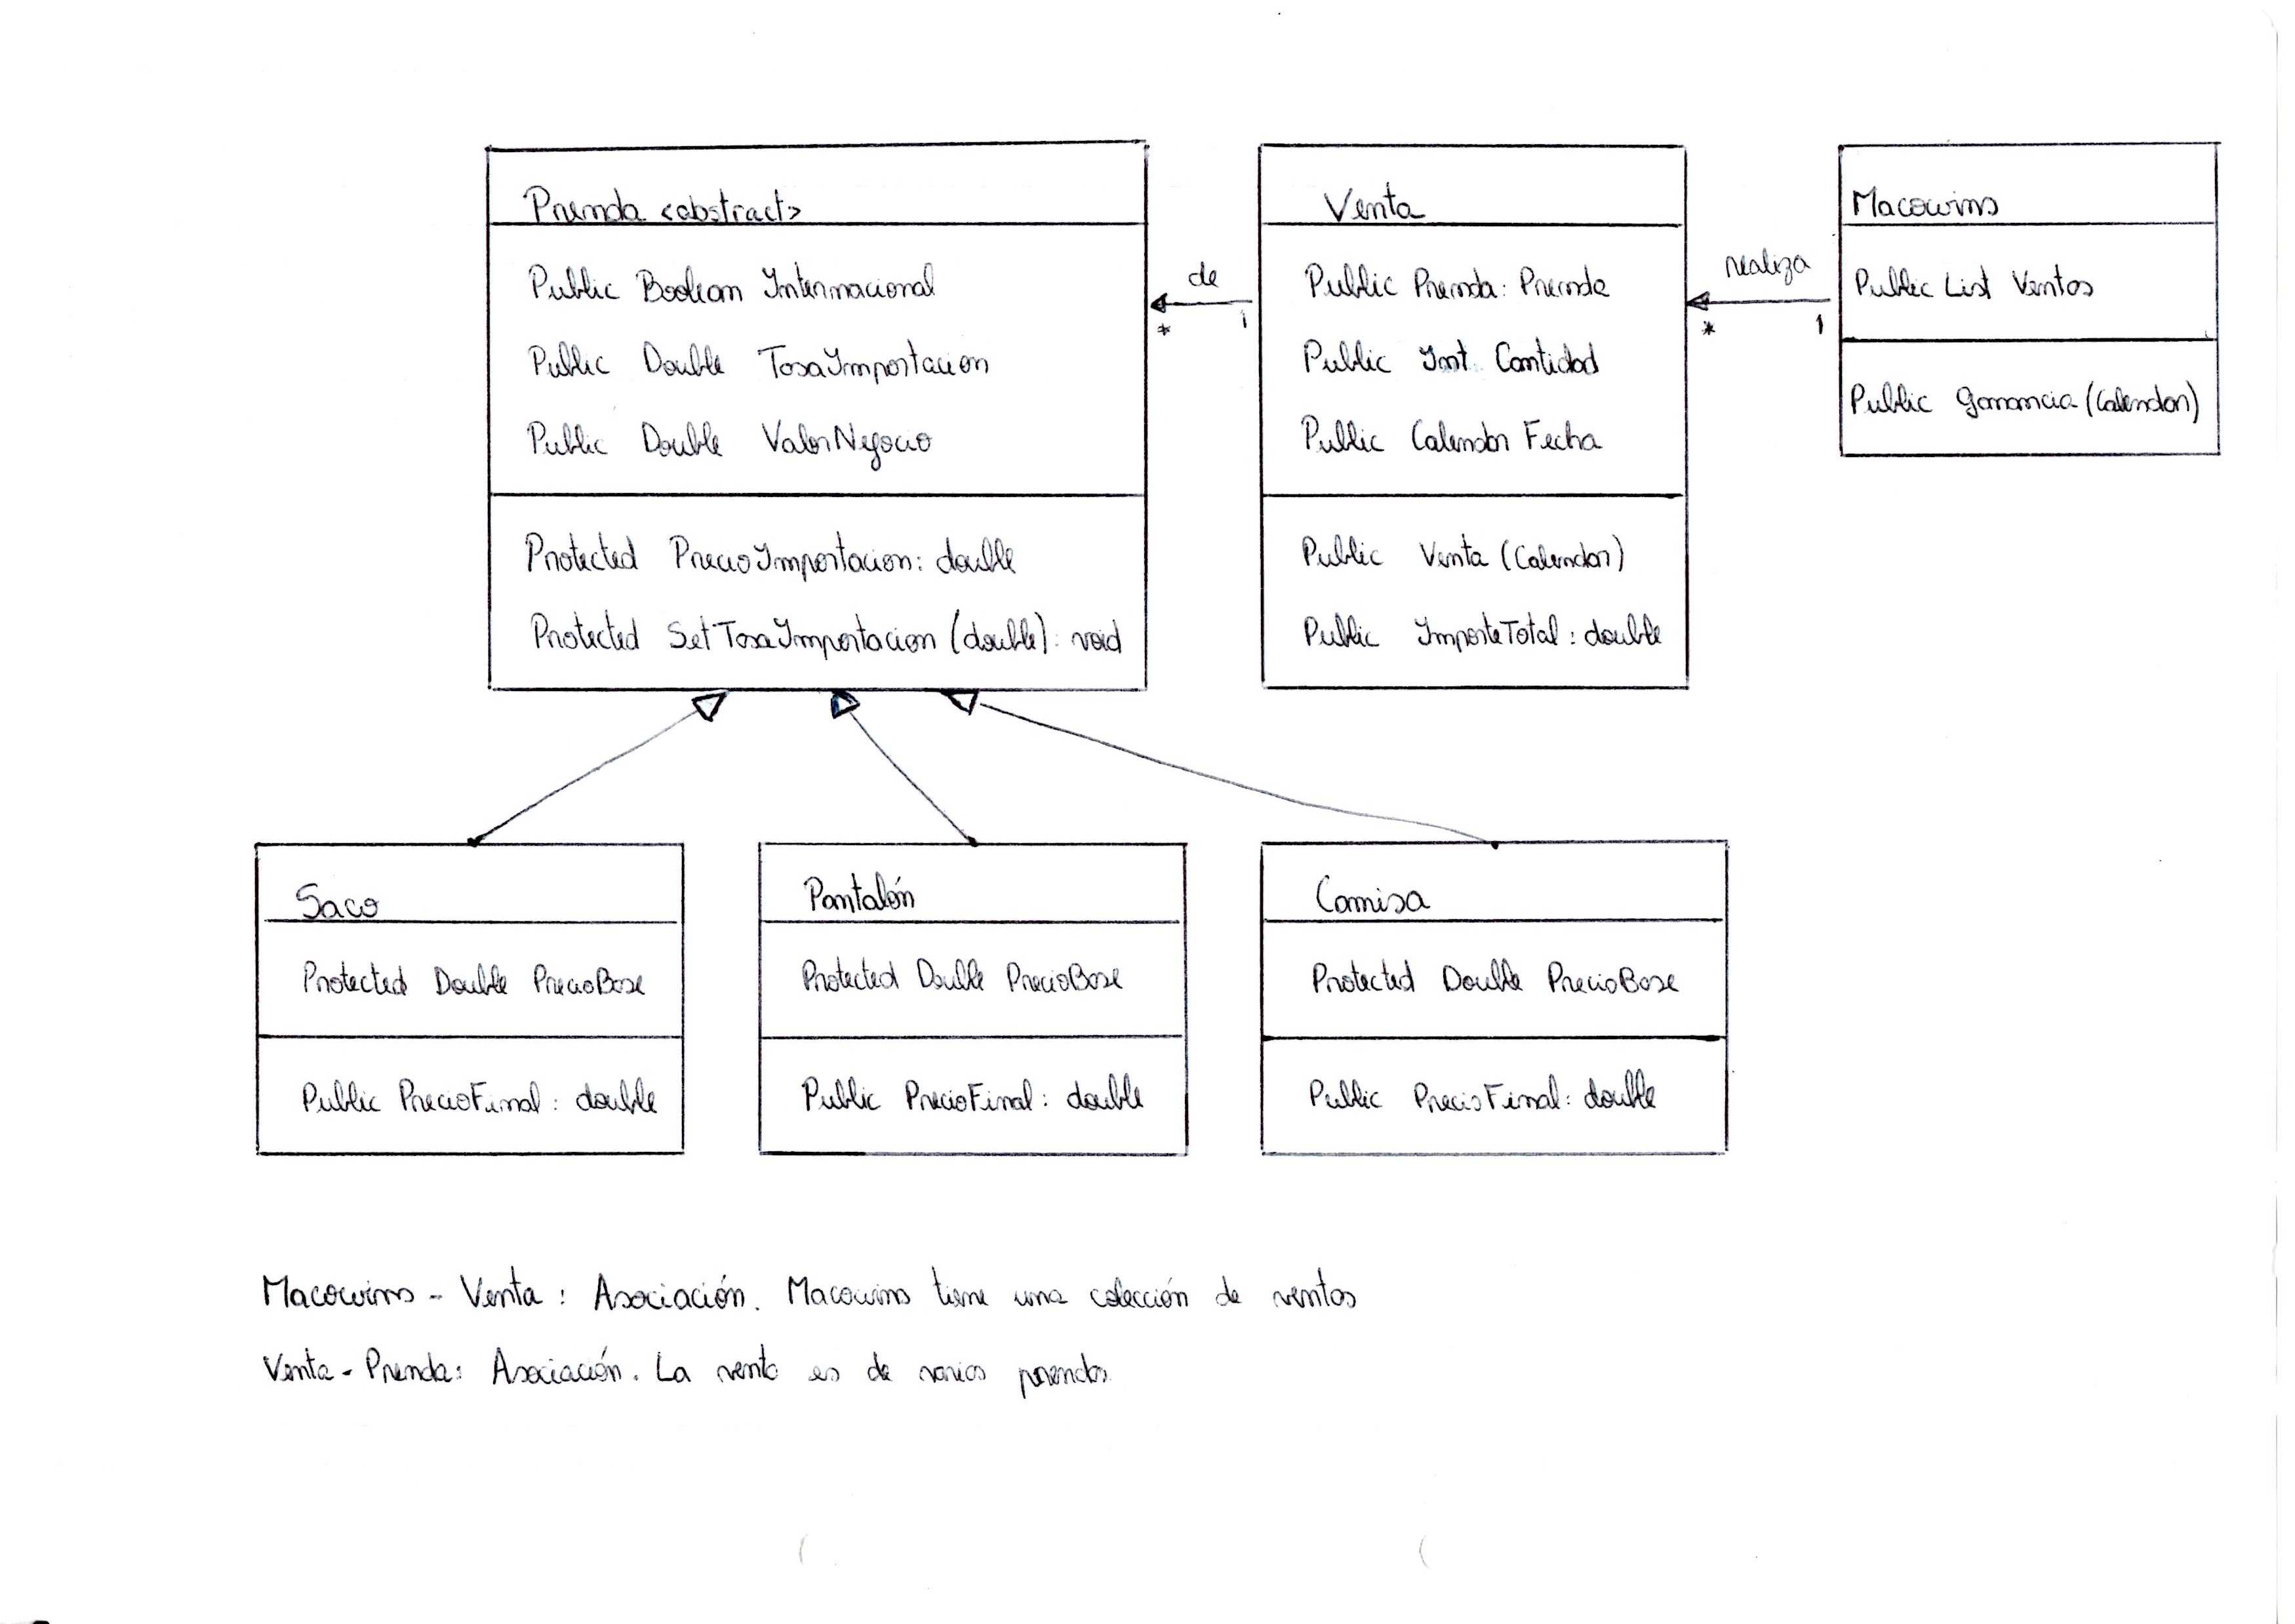 Prenda <abstract>
Public Boolean Internacional
Public Double TasaImportacion
Public Double ValorNegocio
Protected PrecioImportacion: double
Protected SetTasaImportacion (double): void
de
* 1
Venta
Public Prenda: Prenda
Public Int Cantidad
Public Calendar Fecha
Public Venta (Calendar)
Public ImporteTotal: double
realiza
* 1
Macowins
Public List Ventas
Public Ganancia (Calendar)
Saco
Protected Double PrecioBase
Public PrecioFinal: double
Pantalón
Protected Double PrecioBase
Public PrecioFinal: double
Camisa
Protected Double PrecioBase
Public PrecioFinal: double
Macowins - Venta: Asociación. Macowins tiene una colección de ventas
Venta - Prenda: Asociación. La venta es de varias prendas